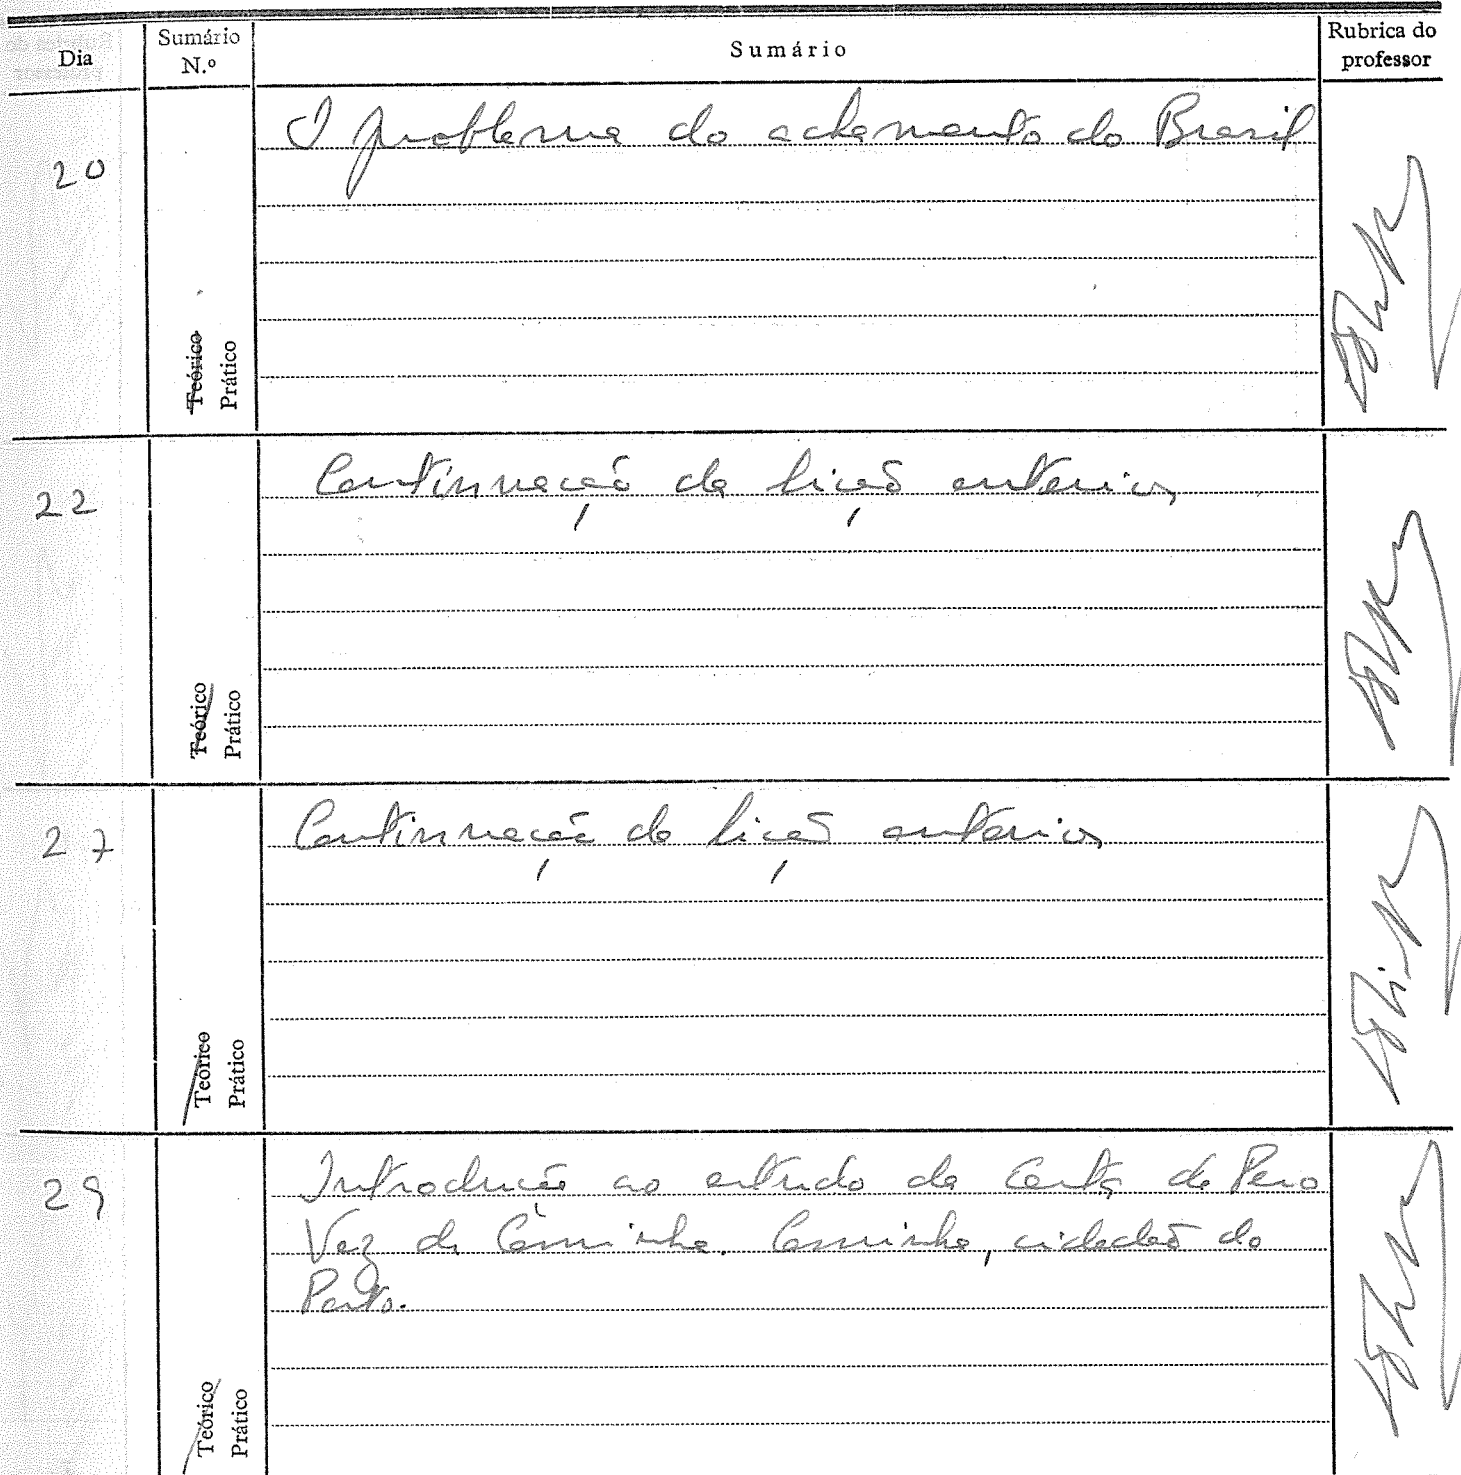 Dia
Sumário N.º
Sumário
Rubrica do professor
20
Teórico
Prático
O problema do achamento do Brasil
22
Teórico
Prático
Continuação da lição anterior
27
Teórico
Prático
Continuação da lição anterior
29
Teórico
Prático
Introdução ao estudo da Carta de Pero
Vaz de Caminha. Caminha, cidadão do
Porto.